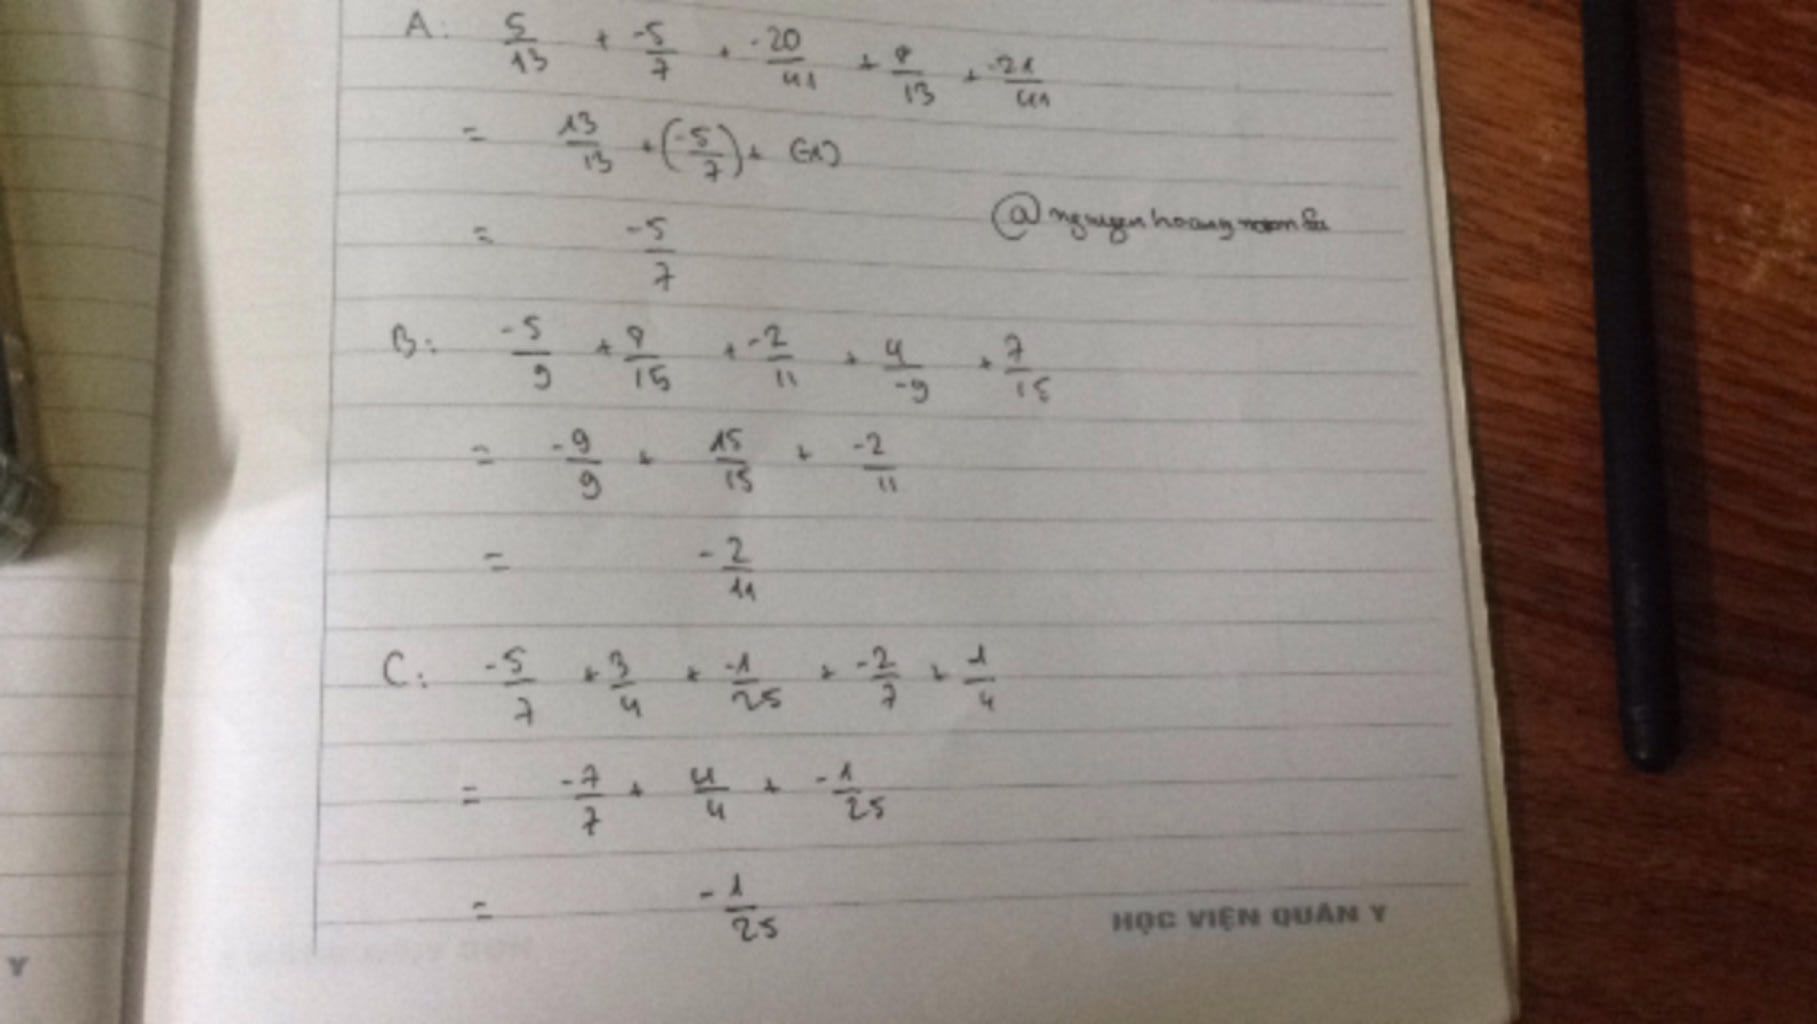 A: 5/13 + -5/7 + -20/41 + 8/13 + -21/41
= 13/13 + (-5/7) + (-1)
= -5/7
B: -5/9 + 8/15 + -2/11 + 4/-9 + 7/15
= -9/9 + 15/15 + -2/11
= -2/11
C: -5/7 + 3/4 + -1/25 + -2/7 + 1/4
= -7/7 + 4/4 + -1/25
= -1/25
HỌC VIỆN QUÂN Y
Y